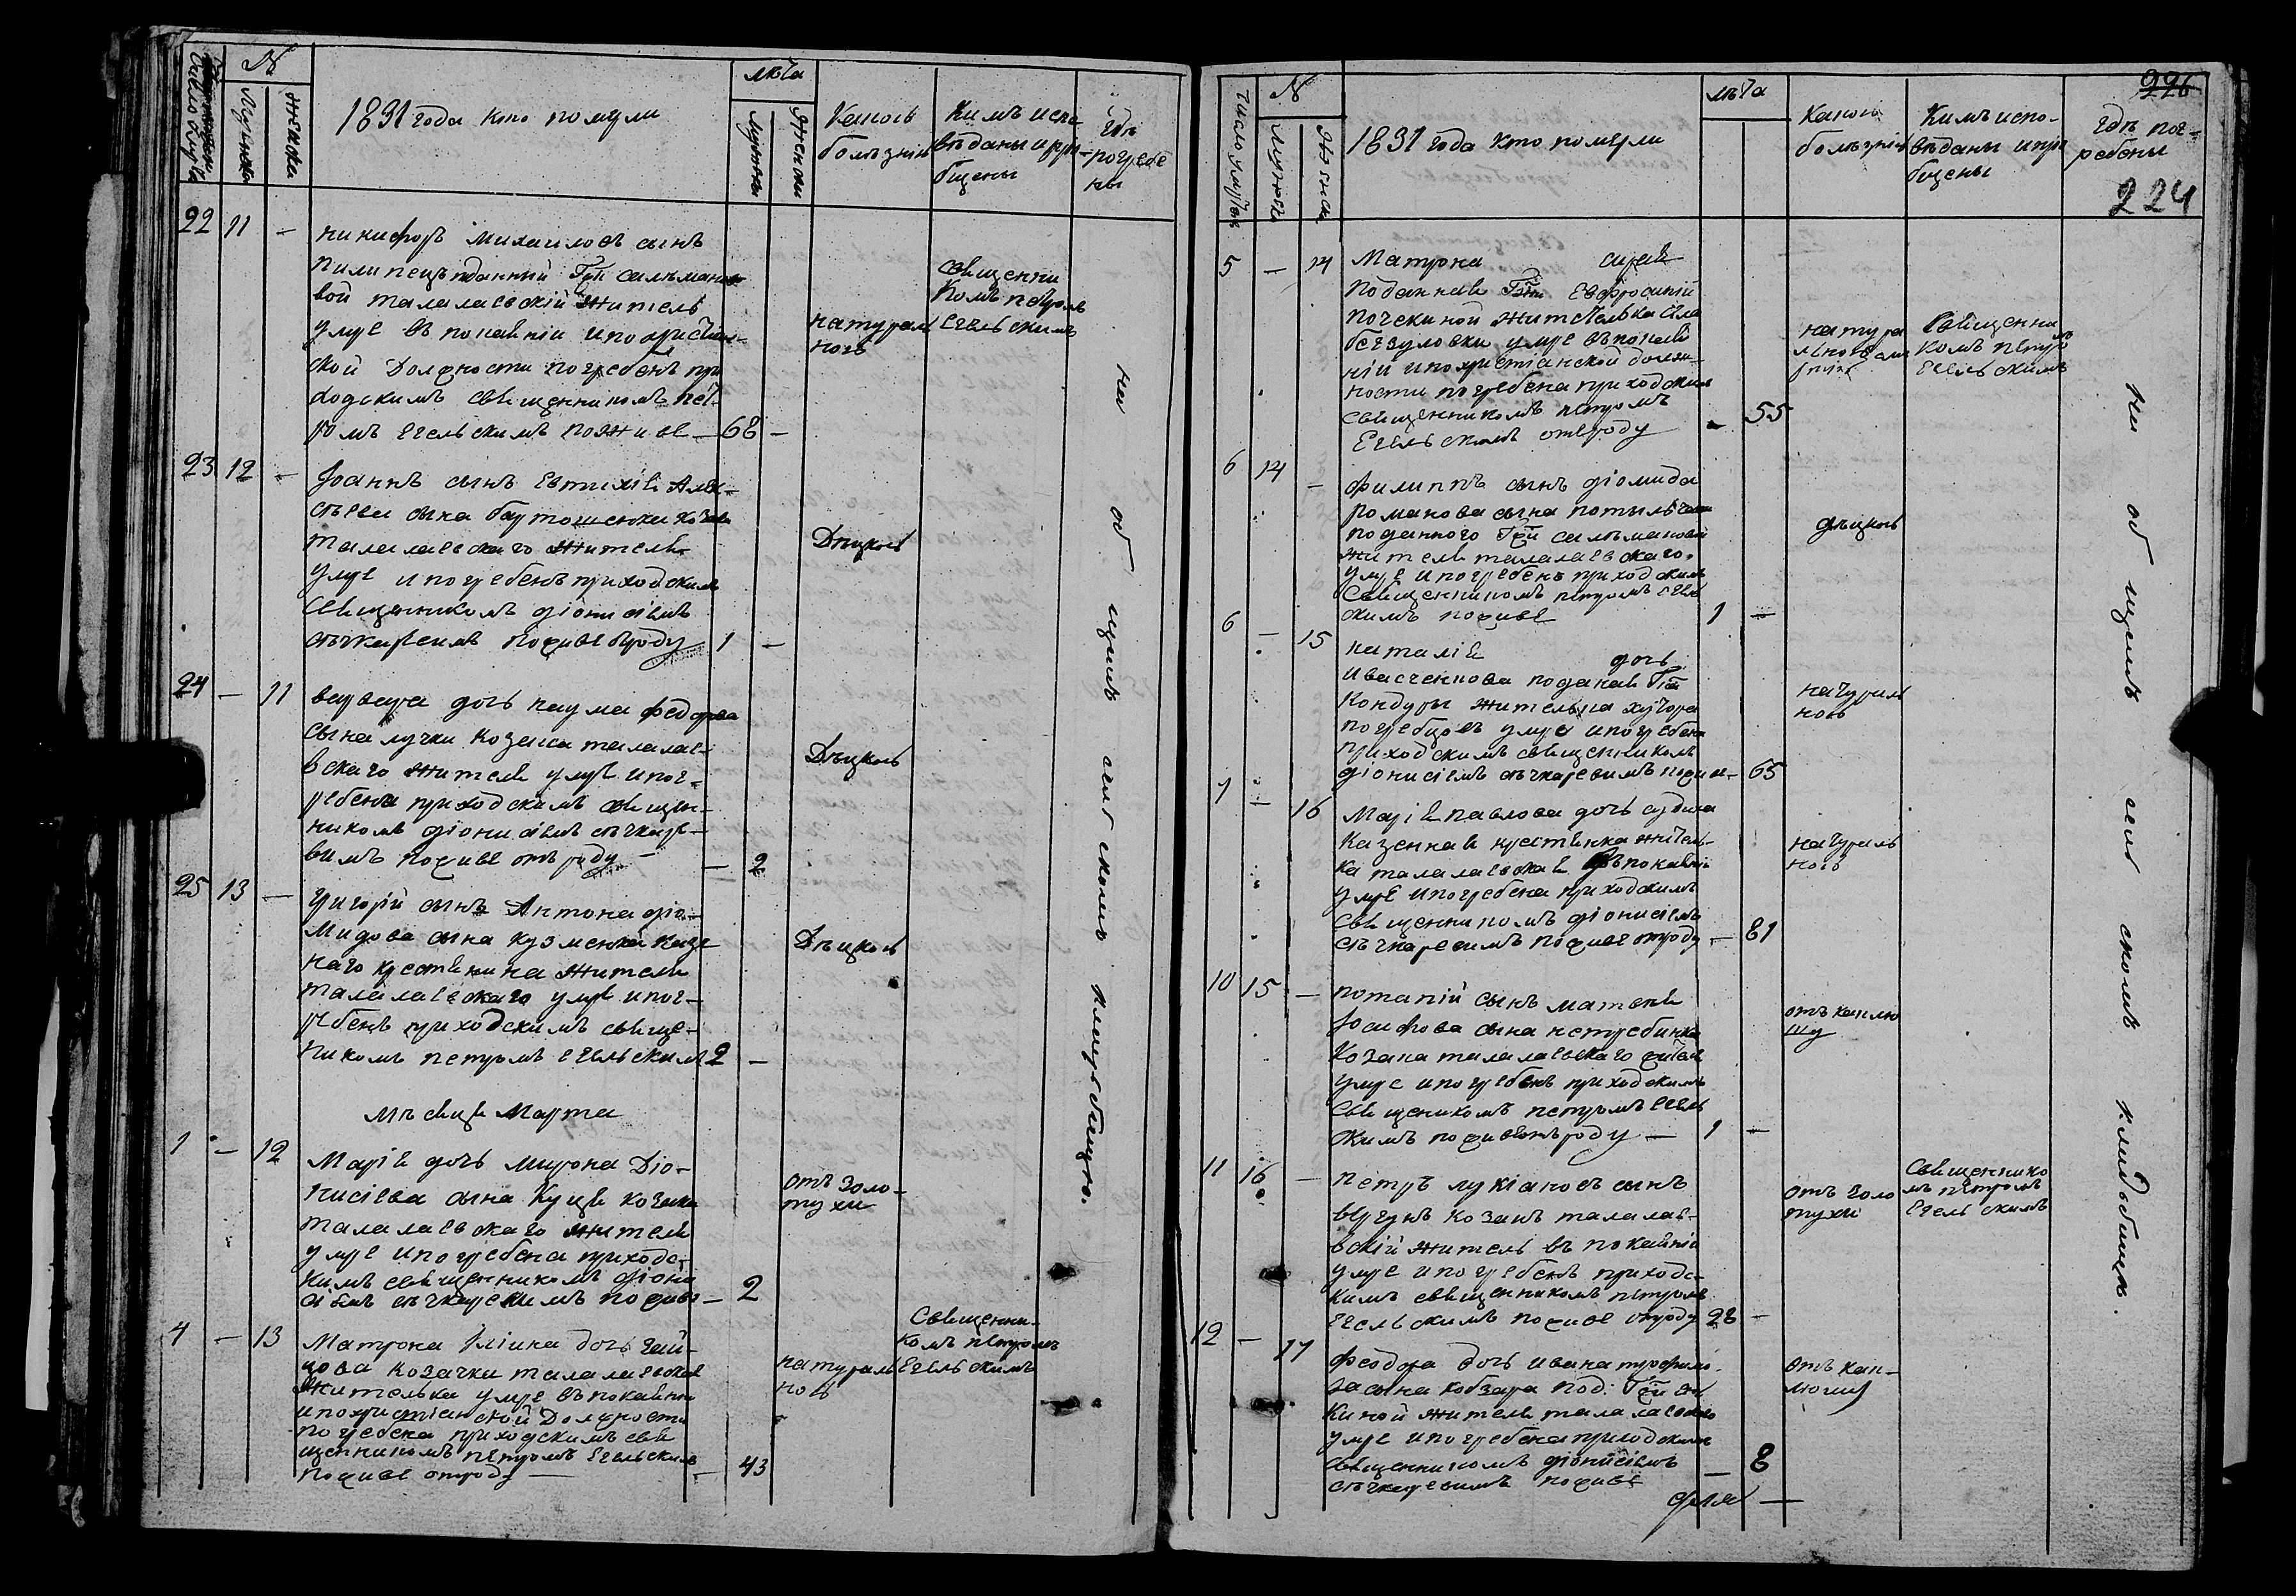 №
лѣта
Мужска
Женска
1831 года кто померли
Мужеска
Женски
Какою
болѣзнію
Кимъ испо
вѣданы и при
бщены
гдѣ
погребе
ны
22 11 -
Никифоръ Михаиловъ сынъ
Пилипецъ подданный Гжи Салъмано
вой талалаевский житель
умре въ покаянии и по христиан-
ской должности погребенъ при
ходскимъ священникомъ пет-
ромъ Егельскимъ поживе - 68 -
натураль
ною
священни
комъ петромъ
Егельскимъ
23 12 -
Іоаннъ сынъ Евтихія Алек-
сѣева сына бартошенка козака
талалаевскаго жителя
умре и погребенъ приходскимъ
священникомъ діонисіемъ
сѣчкаревимъ поживе отроду 1 -
Дѣцкою
24 - 11
варвара дочь наума федорова
сына лучки козака талалае-
вскаго жителя умре и пог-
ребена приходскимъ священ-
никомъ діонисіемъ сѣчкаре-
вимъ поживе отъ роду - - 2
Дѣцкою
25 13 -
Григорій сынъ Антона діо-
мидова сына кузменка казе
наго крестянина жителя
талалаевскаго умре и пог-
ребенъ приходскимъ свяще-
никомъ петромъ Егельскимъ 2 -
Дѣцкою
мѣсяца Марта
1 - 12
Марія дочь Мирона Діо-
нисіева сына Куця козака
талалаевскаго жителя
умре и погребена приходс-
кимъ священникомъ діони
сіемъ сѣчкаревимъ поживе - 2
отъ золо-
тухи
4 - 13
Матрона Иліина дочь
козачка талалаевская
жителька умре въ покаянии
и по христіанской Должности
погребена приходскимъ свя
щенникомъ петромъ Егельскимъ
поживе отроду - - 43
натураль
ною
Священни-
комъ петромъ
Егельскимъ
на общемъ сельскомъ кладбищѣ.
226
224
№
лѣта
число умертв
Мужеска
Женска
1831 года кто померли
Какою
болѣзнію
Кимъ испо-
вѣданы и прио
бщены
гдѣ пог-
ребены
5 - 14
Матрона
Поданная Гжи Евфросиніи
Почекиной жителька села
умре въ покая
ніи и по христіанской должн-
ности погребена приходскимъ
священникомъ петромъ
Егельскимъ отъ роду - 55
натура
льною
Священни
комъ петромъ
Егельскимъ
6 14 -
филиппъ сынъ діомида
романова сына
поданного Гжи салъмановой
жителя талалаевскаго
умре и погребенъ приходскимъ
Священникомъ петромъ Егель
скимъ поживе 1 -
дѣцкою
6 - 15
наталія дочь
Ивасченкова поданая Гжи
Кондуры жителька хутора
погребцовъ умре и погребена
приходскимъ священникомъ
діонисіемъ сѣчкаревимъ поживе - 65
натураль
ною
7 - 16
Марія павлова дочь
казенная крестянка житель-
ка талалаевская въ покаяніи
умре и погребена приходскимъ
священникомъ діонисіемъ
сѣчкаревимъ поживе отроду - 81
натураль
ною
10 15 -
потапій сынъ матвея
Іосифова сына нетребинка
козака талалаевскаго жителя
умре и погребенъ приходскимъ
священикомъ петромъ Егель
скимъ поживе отъ роду - 1 -
отъ каплю
шу
11 16 -
петръ лукіановъ сынъ
вергунъ козакъ талалае-
вскій житель въ покаяніи
умре и погребенъ приходс-
кимъ священникомъ петромъ
Егельскимъ поживе отроду 28 -
отъ золо
тухи
Священнико
мъ петромъ
Егельскимъ
12 - 17
феодора дочь ивана трофимо-
ва сына кобзара под. Гжи
киной жителя талалаевскаго
умре и погребена приходскимъ
священникомъ діонисіемъ
сѣчкаревимъ поживе - 8
отъ кап-
люшу
на общемъ сельскомъ кладбищѣ.